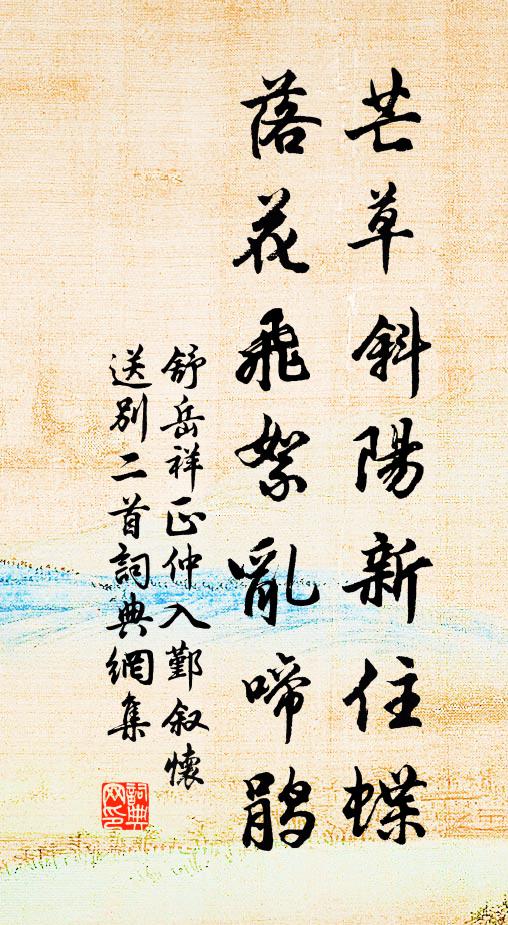 芒草斜陽新住蝶
落花飛絮亂啼鵑
舒岳祥正仲入鄞叙懷
送别二首詞典網集
詞典網印